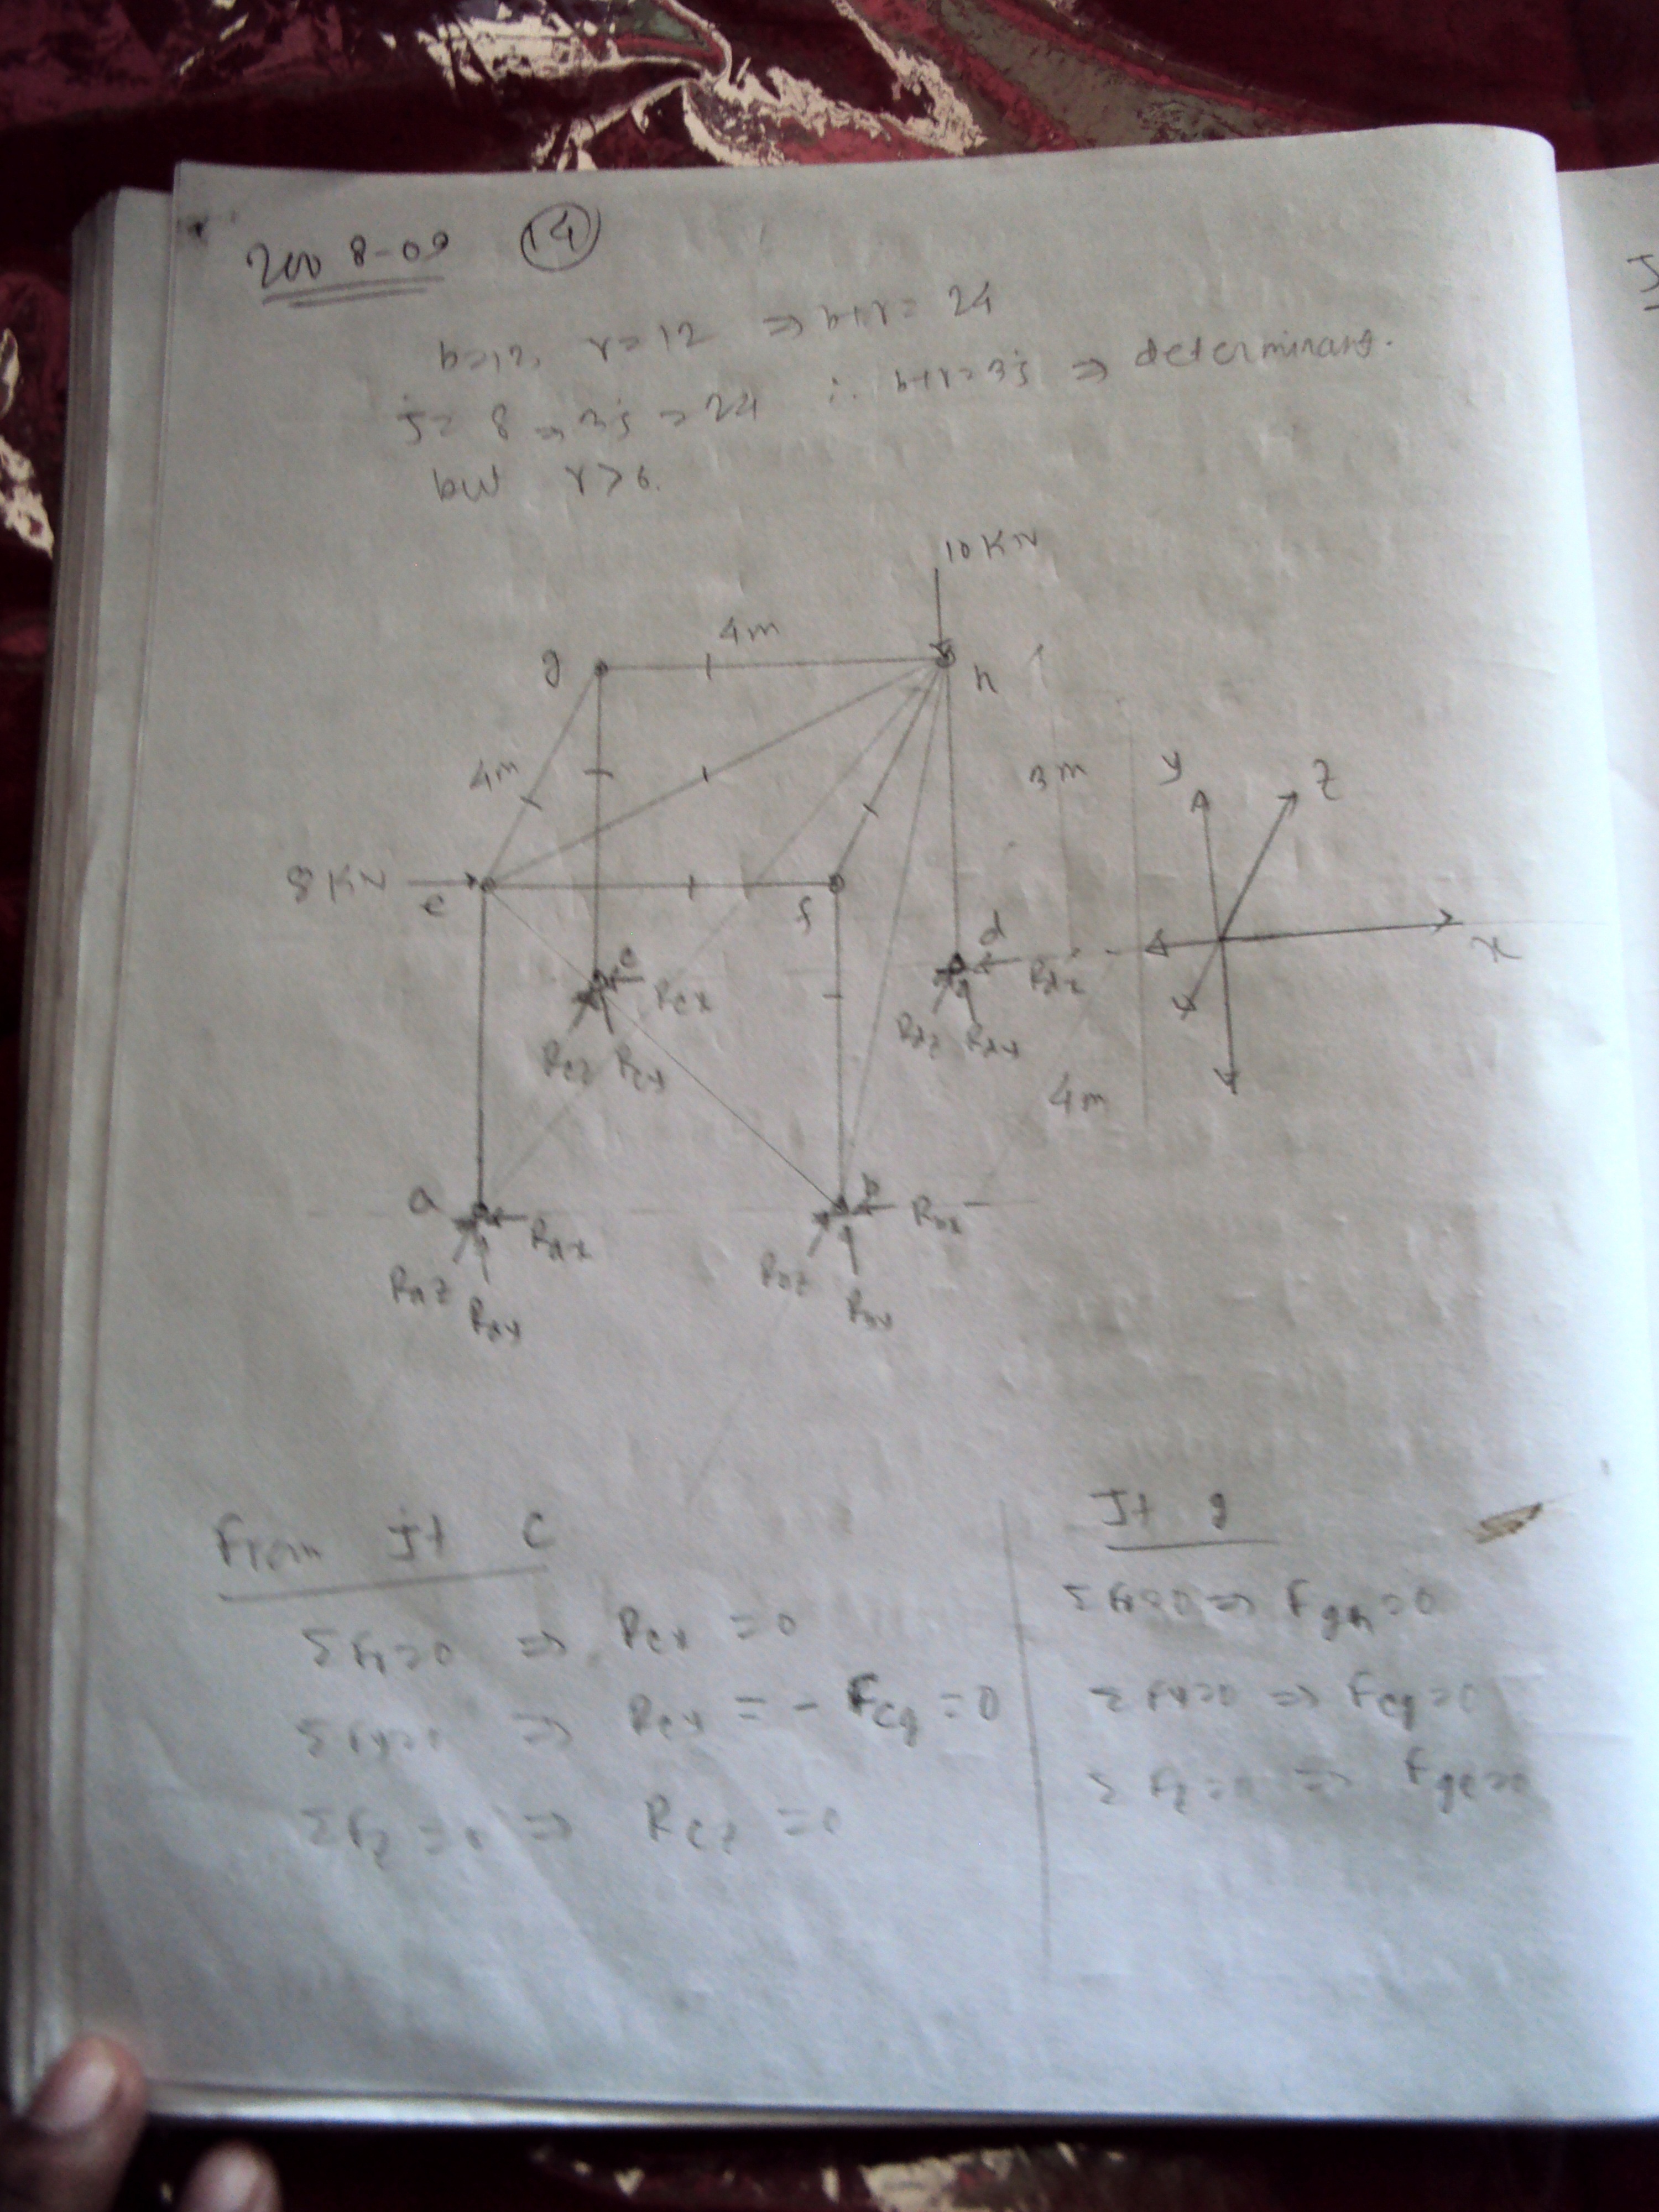 2008-09 (14)
b=12, r=12 ⇒ b+r= 24
j= 8 ⇒ 3j = 24 ∴ b+r=3j ⇒ determinant.
but r>6.
10 KN
4m
g
h
4m
3m
y
z
8 KN
e
f
c
d
x
Rcx
Rdx
Rcz Rcy
Rdz Rdy
4m
a
b
Rax
Rbx
Raz
Ray
Rbz
Rby
From Jt C
ΣFx=0 ⇒ Rcx =0
ΣFy=0 ⇒ Rcy = - Fcg =0
ΣFz =0 ⇒ Rcz =0
Jt g
ΣFx=0 ⇒ Fgh=0
ΣFy=0 ⇒ Fcg=0
ΣFz=0 ⇒ Fge=0
J